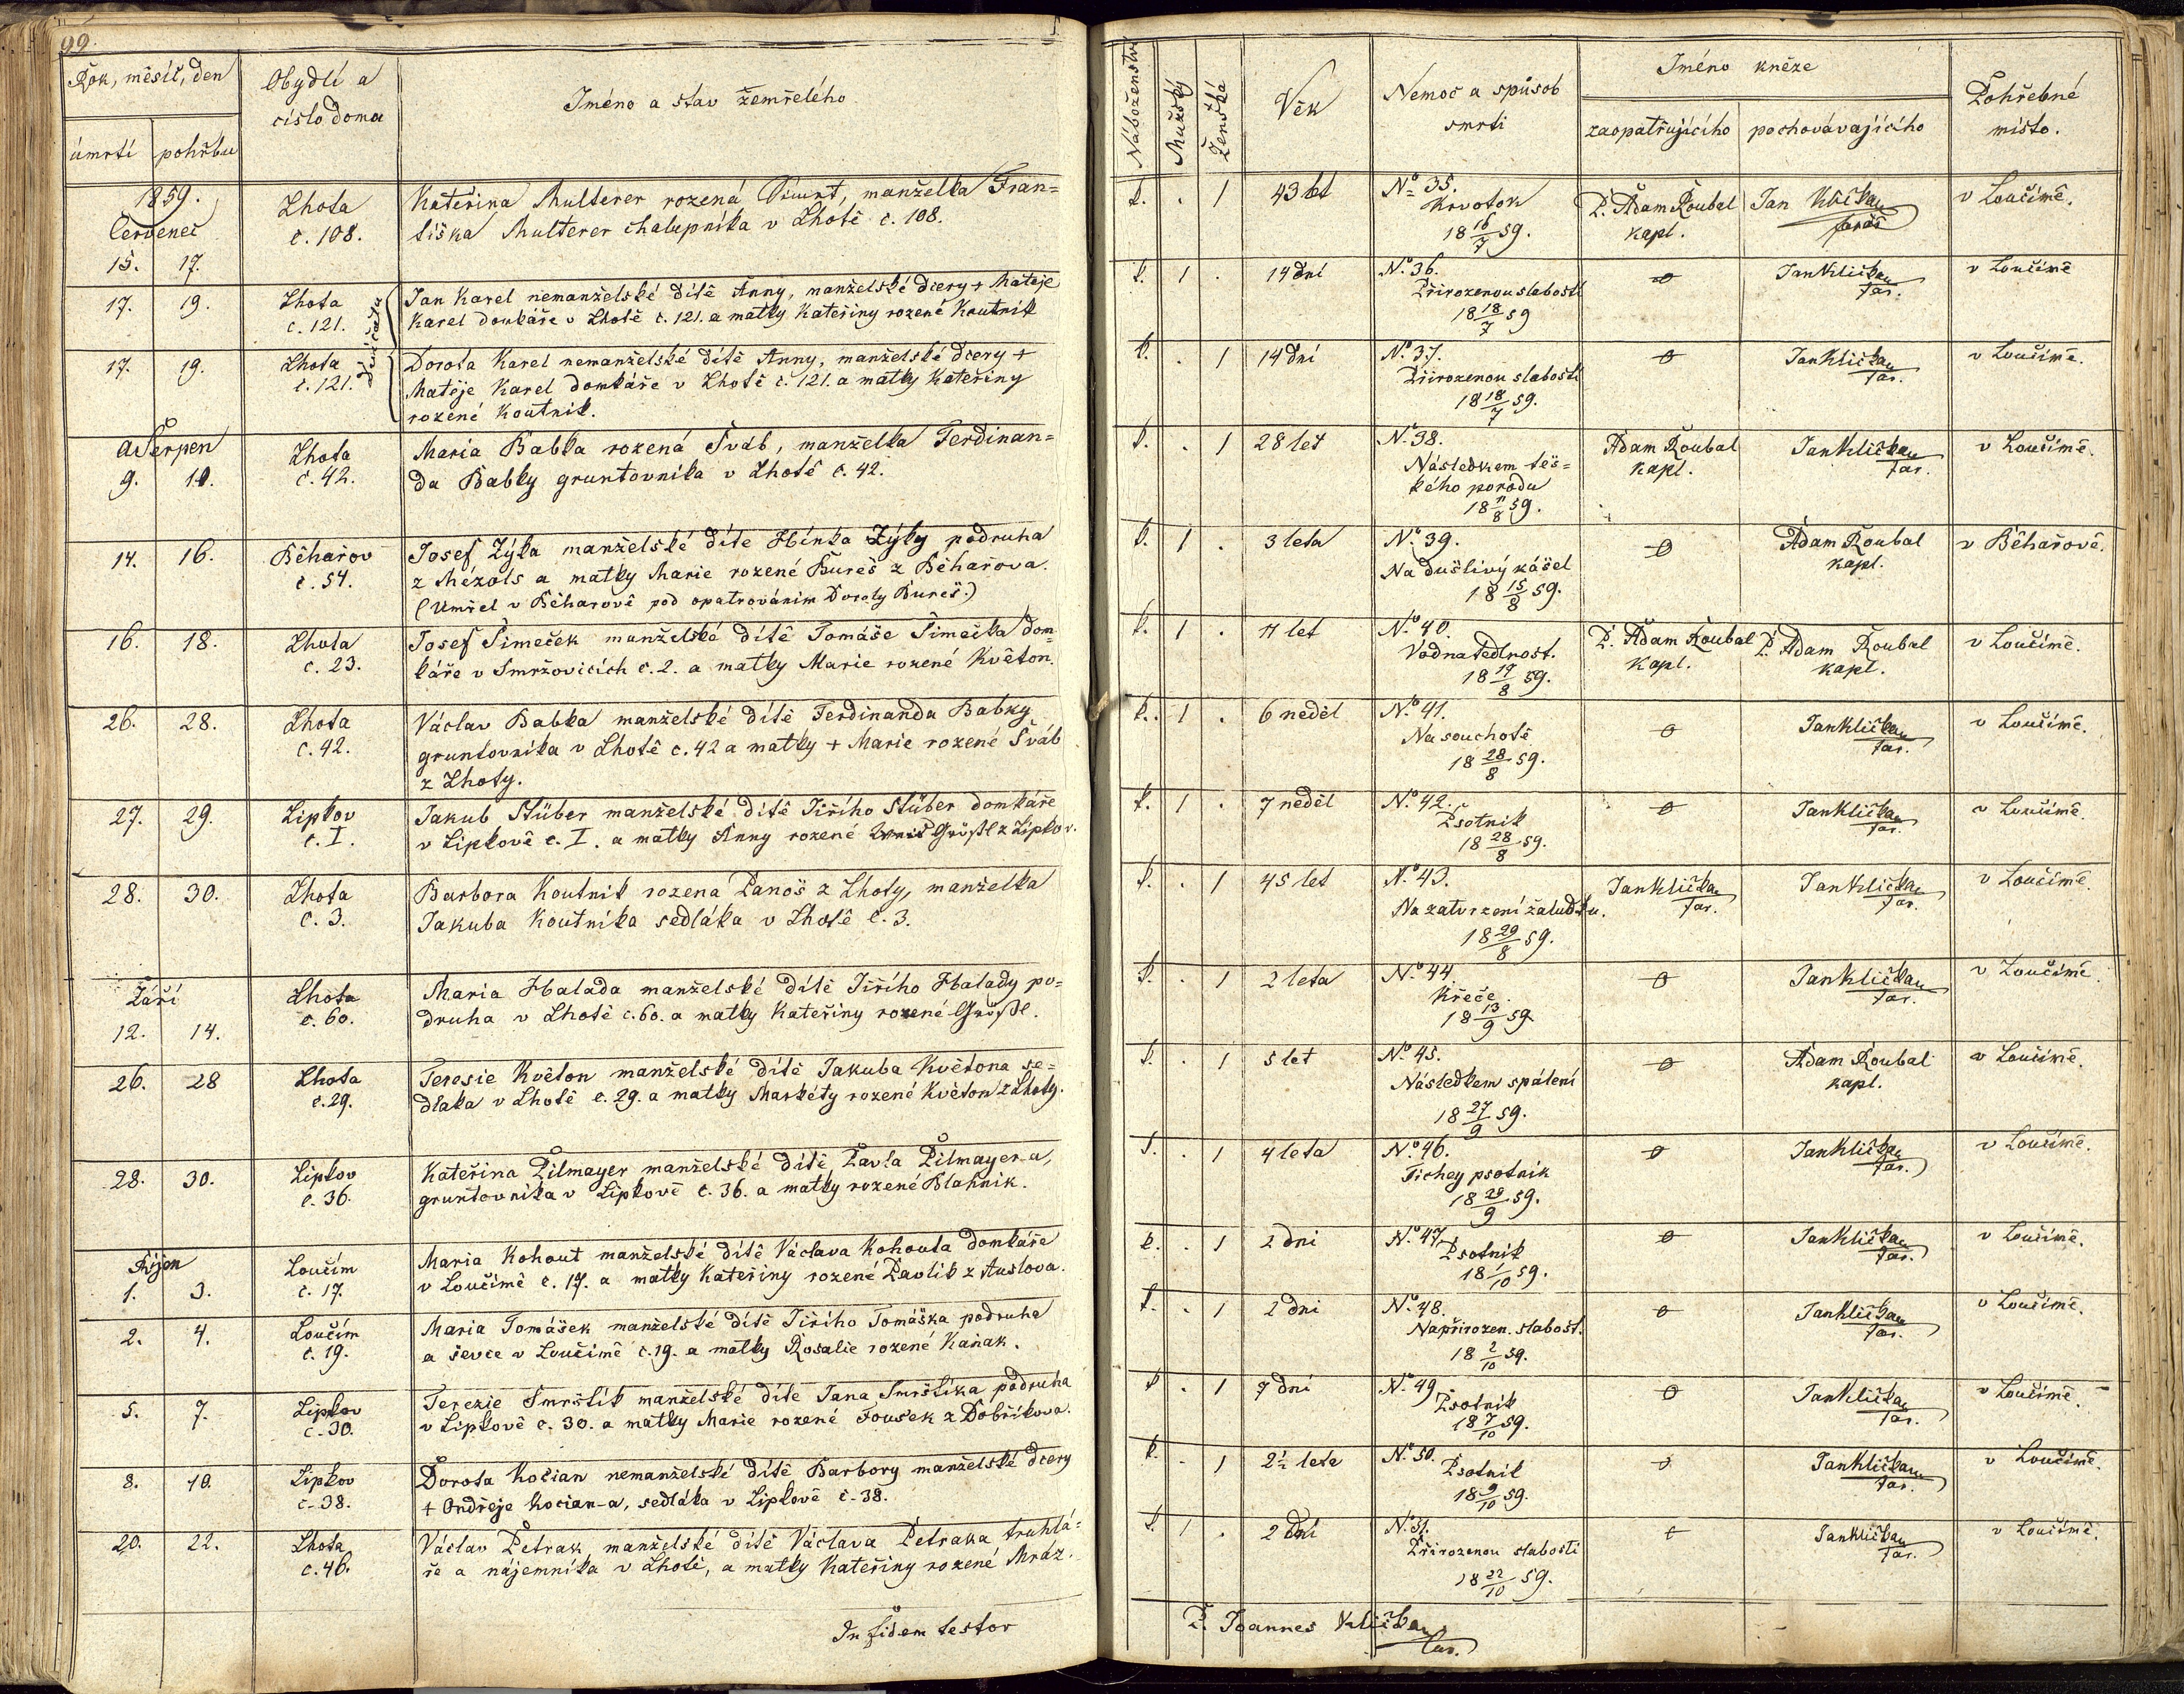 99.
Rok, měsíc, den
Obydlí a
číslo domu
Jméno a stav zemřelého
úmrtí
pohřbu
1859.
Červenec
15. 17.
Lhota
č. 108.
Kateřina Multerer rozená, manželka Fran=
tiška Multerer chalupníka v Lhotě č. 108.
17. 19.
Lhota
č. 121.
Jan Karel nemanželské dítě Anny, manželské dcery + Matěje
Karel domkáře v Lhotě č. 121. a matky Kateřiny rozené Koutnik
17. 19.
Lhota
č. 121.
Dorota Karel nemanželské dítě Anny, manželské dcery +
Matěje Karel domkáře v Lhotě č. 121. a matky Kateřiny
rozené Koutnik.
Srpen
9. 10.
Lhota
č. 42.
Maria Babka rozená Šváb, manželka Ferdinan=
da Babky gruntovníka v Lhotě č. 42.
14. 16.
Běhařov
č. 54.
Josef Zýka manželské díte Hínka Zýky podruha
z Mézols a matky Marie rozené Bureš z Běhařova.
(Umřel v Běharově pod opatrováním Doroty Bureš.)
16. 18.
Lhota
č. 23.
Josef Šimeček manželské dítě Tomáše Šimečka dom=
káře v Smržovicích č. 2. a matky Marie rozené Květon.
26. 28.
Lhota
č. 42.
Václav Babka manželské dítě Ferdinanda Babky
gruntovníka v Lhotě č. 42 a matky + Marie rozené Šváb
z Lhoty.
27. 29.
Lipkov
č. I.
Jakub Stüber manželské dítě Jiřího Stüber domkáře
v Lipkově č. I. a matky Anny rozené Größl z Lipkov.
28. 30.
Lhota
č. 3.
Barbora Koutnik rozena Panoš z Lhoty, manželka
Jakuba Koutníka sedláka v Lhotě č. 3.
Září
12. 14.
Lhota
č. 60.
Maria Halada manželské dítě Jiřího Halady po=
druha v Lhotě č. 60. a matky Kateřiny rozené Größl.
26. 28
Lhota
č. 29.
Teresie Květon manželské dítě Jakuba Květona se=
dláka v Lhotě č. 29. a matky Markéty rozené Květon z Lhoty.
28. 30.
Lipkov
č. 36.
Kateřina Pilmayer manželské dítě Pavla Pilmayer-a,
gruntovníka v Lipkově č. 36. a matky rozené Blahnik.
Říjen
1. 3.
Loučím
č. 17.
Maria Kohout manželské dítě Václava Kohouta domkáře
v Loučímě č. 17. a matky Kateřiny rozené Pavlik z Auslova.
2. 4.
Loučím
č. 19.
Maria Tomášek manželské dítě Jiřího Tomáška podruha
a ševce v Loučimě č. 19. a matky Rosalie rozené Kaňak.
5. 7.
Lipkov
č. 30.
Terezie Smrštik manželské díte Jana Smrštika podruha
v Lipkově č. 30. a matky Marie rozené Fousek z Dobříkova.
8. 10.
Lipkov
č. 38.
Dorota Kocian nemanželské dítě Barbory manželské dcery
+ Ondřeje Kocian-a, sedláka v Lipkově č. 38.
20. 22.
Lhota
č. 46.
Václav Petrak, manželské dítě Václava Petraka truhlá=
ře a nájemníka v Lhotě, a matky Kateřiny rozené Mráz.
In fidem testor
Náboženství
Mužský
Ženské
Věk
Nemoc a spůsob
smrti
Jméno kněze
zaopatřujícího
pochovávajícího
Pohřebné
místo.
k. . 1 43 let
No 35.
Krvotok
18 16/7 59.
P. Adam Roubal
kapl.
Jan Klička
farář
v Loučimě.
k. 1 . 14 dní
No 36.
Přirozenou slabostí
18 18/7 59
0
Jan Klička
far.
v Loučimě
k. . 1 14 dní
No 37.
Přirozenou slabostí
18 18/7 59.
0
Jan Klička
far.
v Loučimě.
k. . 1 28 let
No 38.
Následkem těž=
kého porodu
18 11/8 59.
Adam Roubal
kapl.
Jan Klička
far.
v Loučimě.
k. 1 . 3 leta
No 39.
Na dušlivý kášel
18 15/8 59.
0
Adam Roubal
kapl.
v Běhařově.
k. 1 . 11 let
No 40.
Vodnatedlnost.
18 17/8 59.
P. Adam Roubal
kapl.
P. Adam Roubal
kapl.
v Loučimě.
k. 1 . 6 neděl
No 41.
Na souchotě
18 28/8 59.
0
Jan Klička
far.
v Loučímě.
k. 1 . 7 neděl
No 42.
Psotnik
18 28/8 59.
0
Jan Klička
far.
v Loučimě.
k. . 1 45 let
No 43.
Na zatvrzení žaludku.
18 29/8 59.
Jan Klička
far.
Jan Klička
far.
v Loučimě.
k. . 1 2 leta
No 44
Křeče.
18 13/9 59
0
Jan Klička
far.
v Loučimě
k. . 1 5 let
No 45.
Následkem spálení
18 27/9 59.
0
Adam Roubal
kapl.
v Loučimě.
k. . 1 4 leta
No 46.
Tichey psotnik
18 29/9 59.
0
Jan Klička
far.
v Loučimě.
k. . 1 2 dni
No 47.
Psotnik
18 1/10 59.
0
Jan Klička
far.
v Loučimě.
k. . 1 2 dni
No 48.
Na přirozen. slabost.
18 2/10 59.
0
Jan Klička
far.
v Loučimě.
k. . 1 7 dni
No 49.
Psotnik
18 7/10 59.
0
Jan Klička
far.
v Loučimě.
k. . 1 2½ leta
No 50.
Psotnik
18 9/10 59.
0
Jan Klička
far.
v Loučimě.
k. 1 . 2 dni
No 51.
Přirozenou slabosti
18 22/10 59.
0
Jan Klička
far.
v Loučimě.
P. Joannes Klička
far.